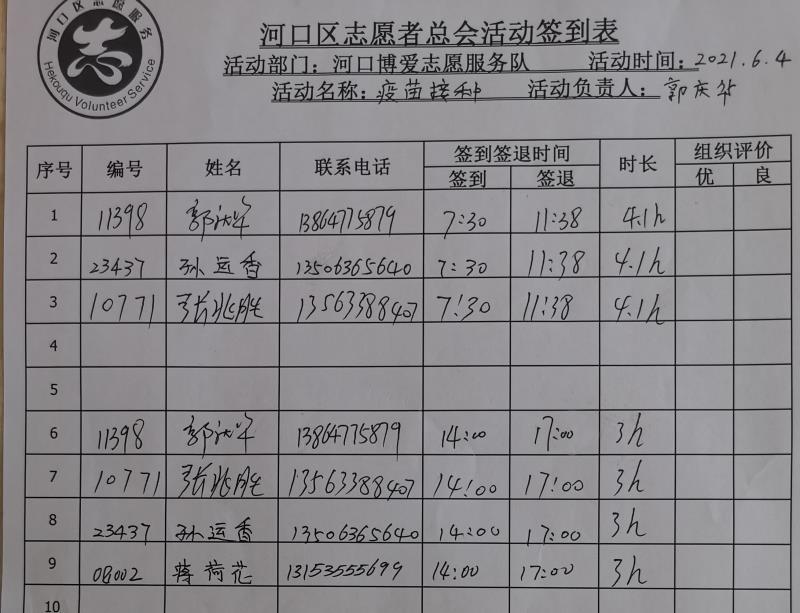 河口区志愿服务
志
Hekouqu Volunteer Service
河口区志愿者总会活动签到表
活动部门：河口博爱志愿服务队 活动时间：2021.6.4
活动名称：疫苗接种 活动负责人：郭庆华
序号 编号 姓名 联系电话 签到签退时间 时长 组织评价
签到 签退 优 良
1 11398 郭 13864775879 7:30 11:38 4.1h
2 23437 孙运香 13506365640 7:30 11:38 4.1h
3 10771 张兆胜 13563388407 7:30 11:38 4.1h
4
5
6 11398 郭 13864775879 14:00 17:00 3h
7 10771 张兆胜 13563388407 14:00 17:00 3h
8 23437 孙运香 13506365640 14:00 17:00 3h
9 08002 蒋荷花 13153555699 14:00 17:00 3h
10